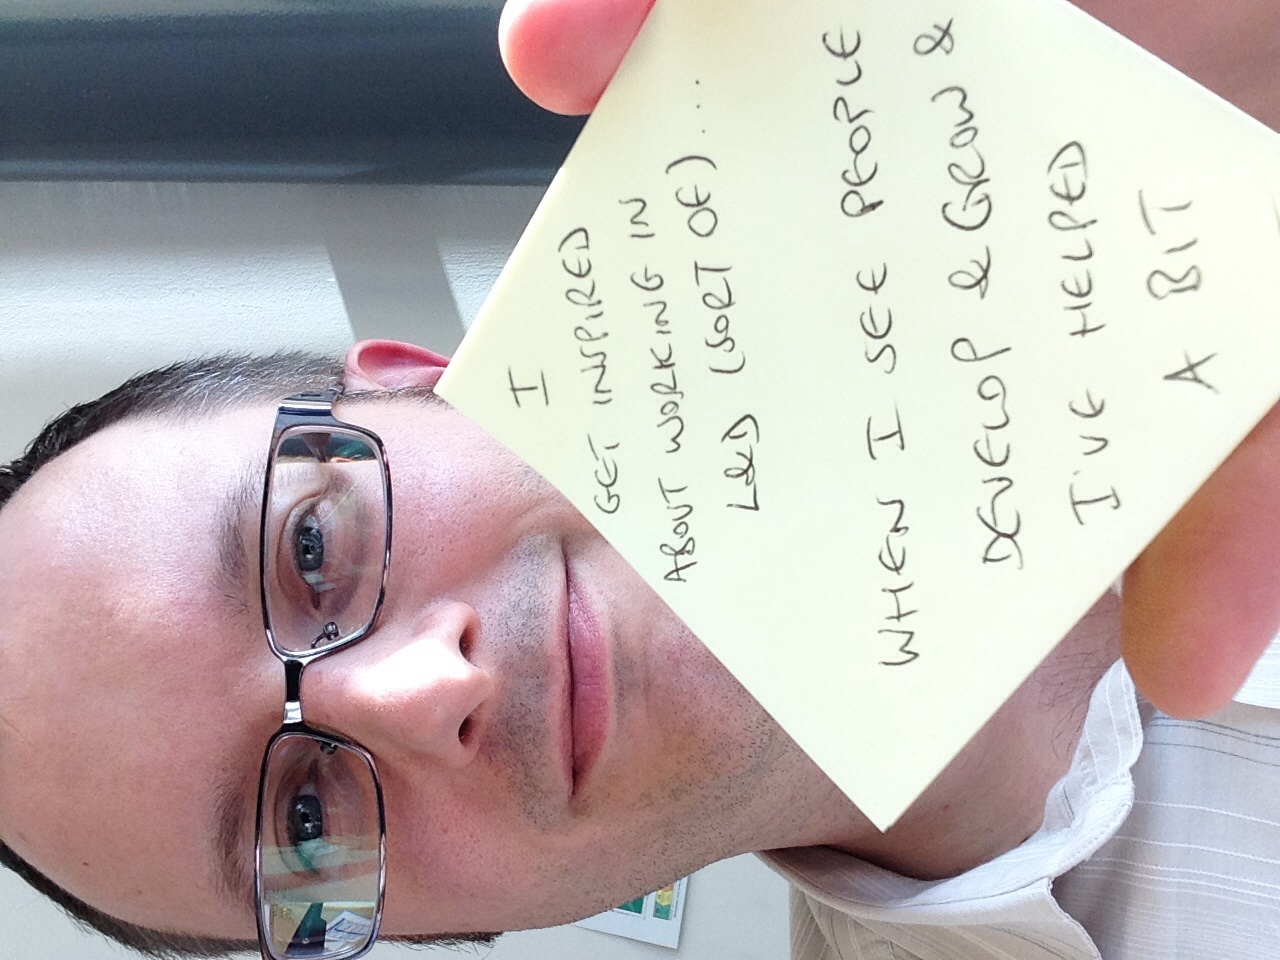 I
GET INSPIRED
ABOUT WORKING IN
L&D (SORT OF)...
WHEN I SEE PEOPLE
DEVELOP & GROW &
I'VE HELPED
A BIT